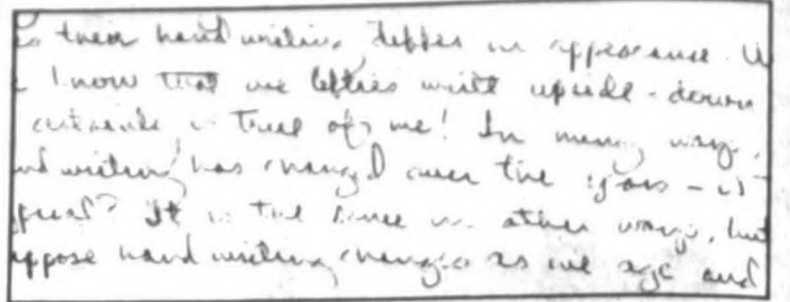 their handwriting differ in appearance. 
know that we lefties write upside-down
certainly is true of me! In many ways,
handwriting has changed over the years - is
It is the same in other ways, but
suppose handwriting changes as we age and